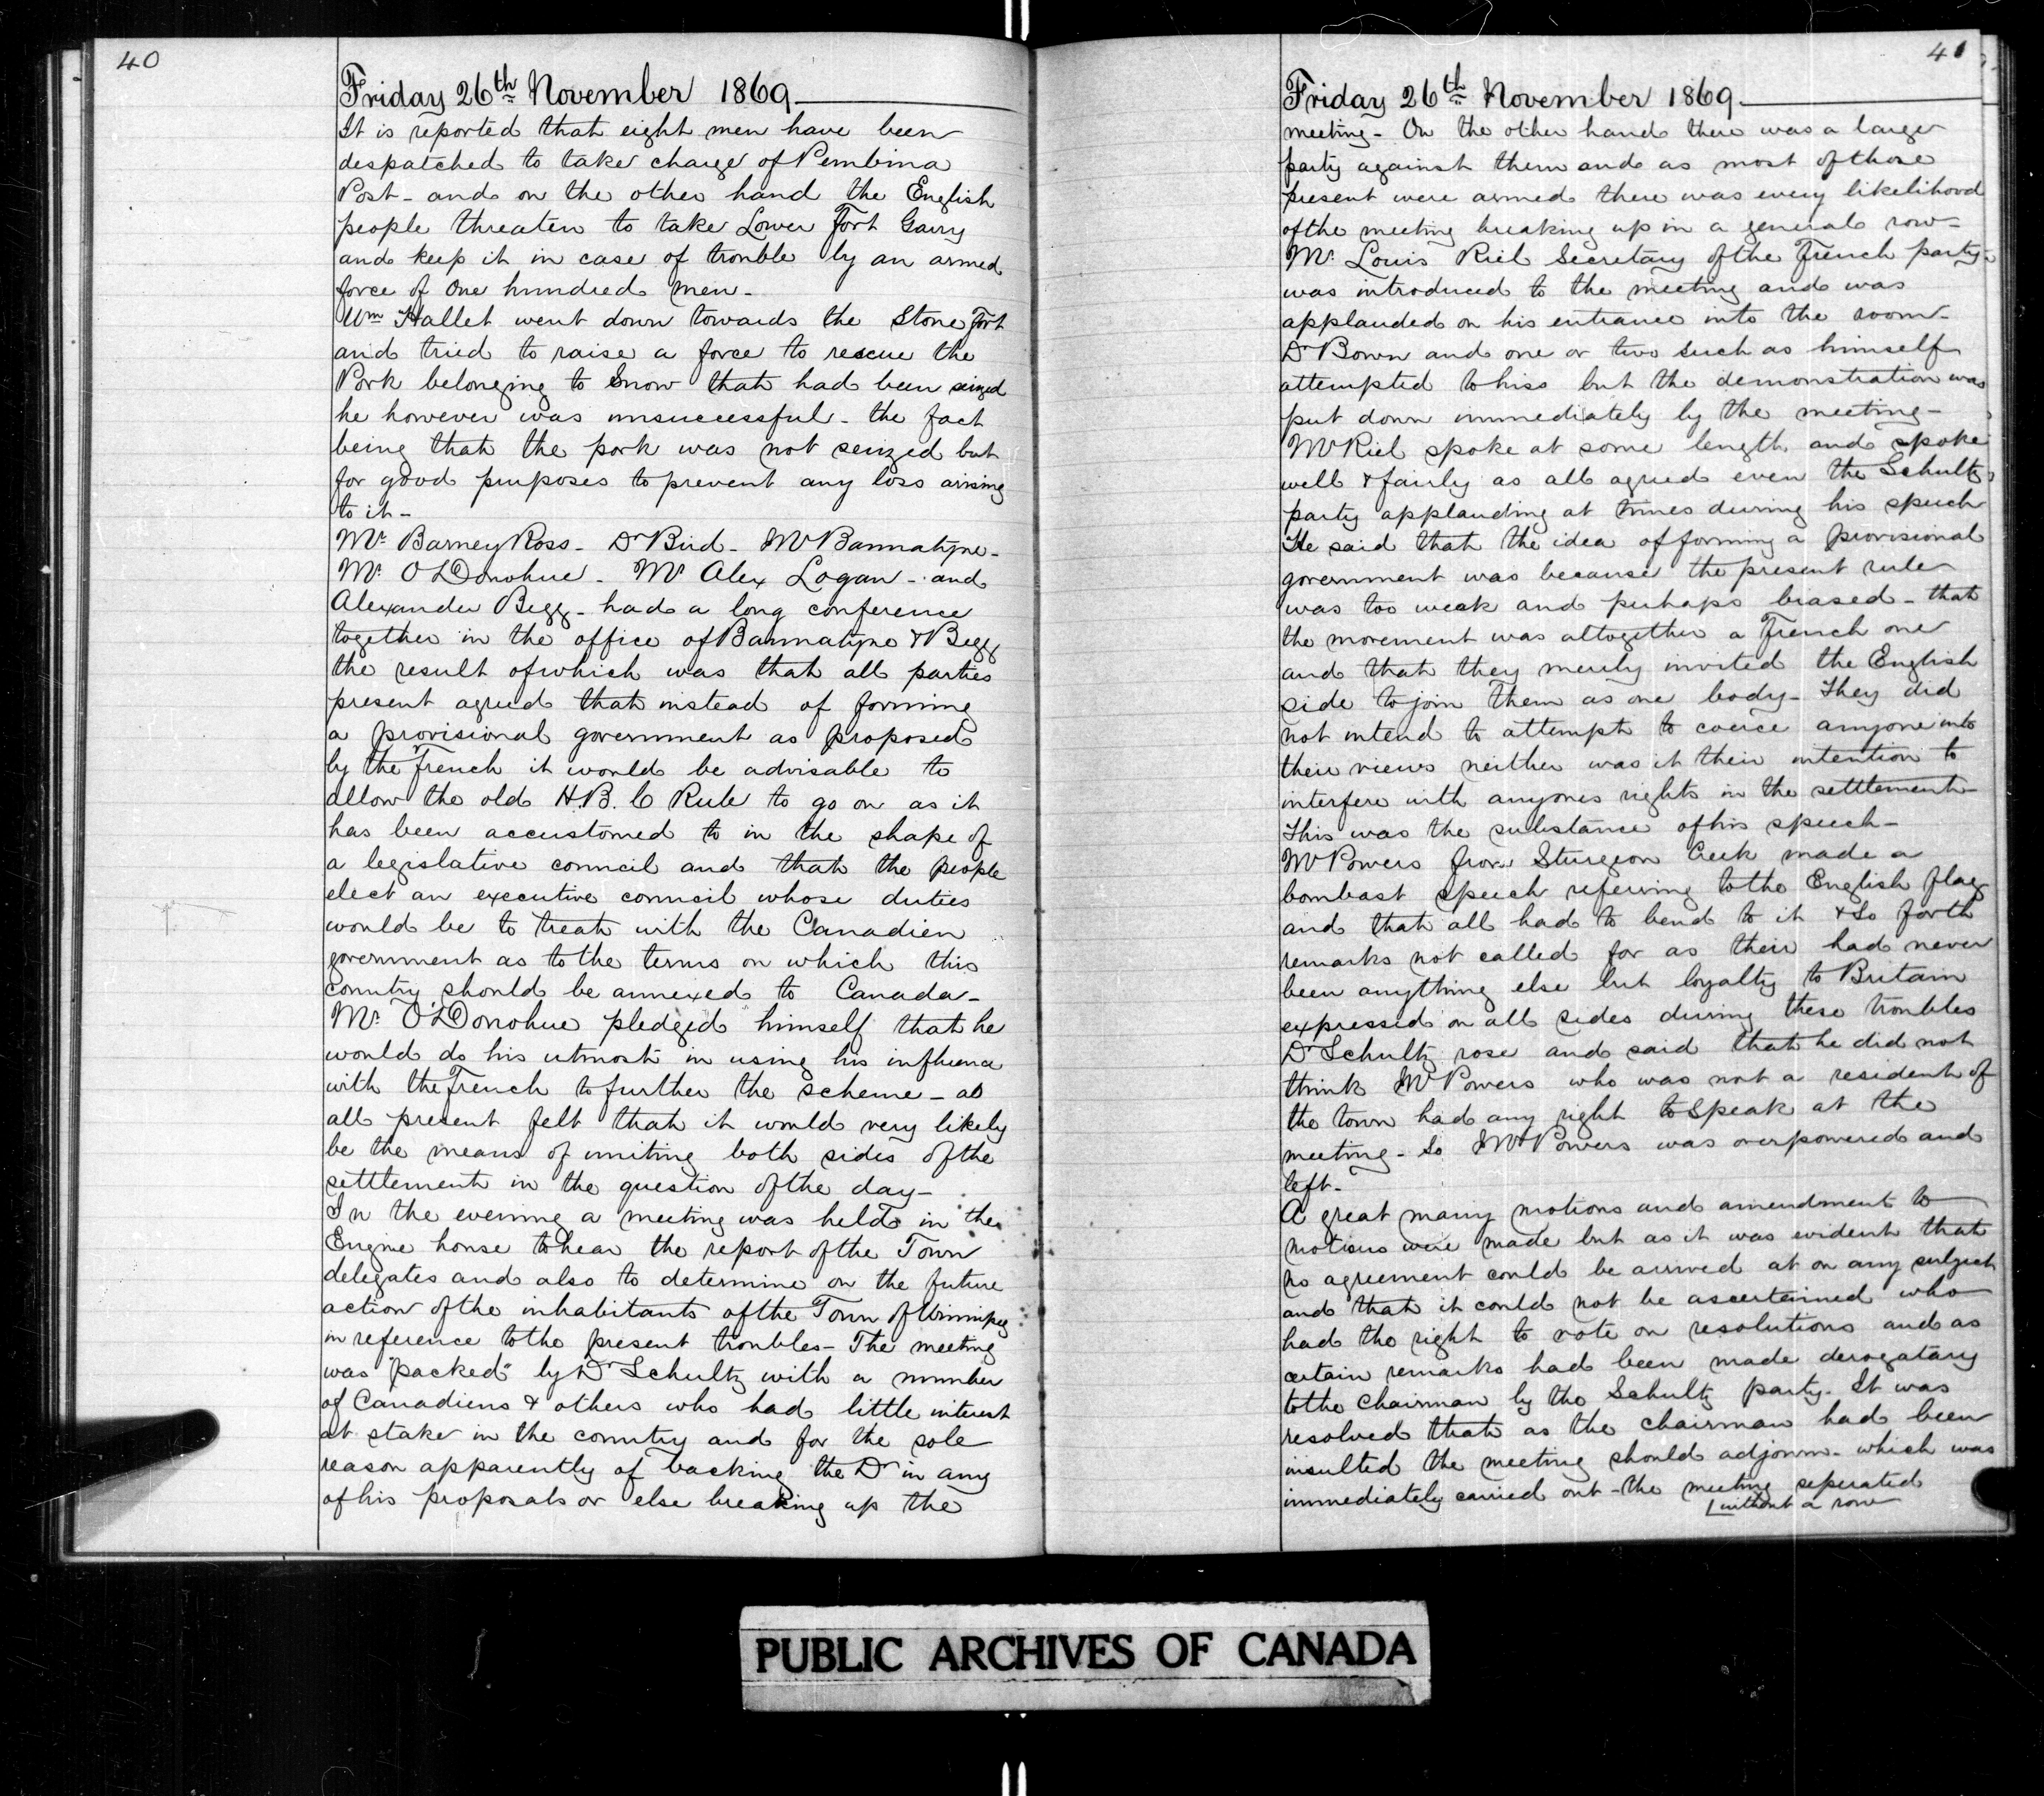 40
Friday 26th November 1869
It is reported that eight men have been
despatched to take charge of Pembina
Post - and on the other hand the English
people threaten to take Lower Fort Garry
and keep it in case of trouble by an armed
force of One hundred men -
Wm Hallet went down towards the Stone Fort
and tried to raise a force to rescue the
Pork belonging to Snow that had been seized
he however was unsuccessful - the fact
being that the pork was not seized but
for good purposes to prevent any loss arising
to it -
Mr. Barney Ross - Dr Bird - Mr Bannatyne -
Mr. O'Donohue - Mr Alex Logan - and
Alexander Begg - had a long conference
together in the office of Bannatyne & Begg
the result of which was that all parties
present agreed that instead of forming
a provisional government as proposed
by the French it would be advisable to
allow the old H.B.C Rule to go on as it
has been accustomed to in the shape of
a legislative council and that the people
elect an executive council whose duties
would be to treat with the Canadien
government as to the terms on which this
country should be annexed to Canada -
Mr. O'Donohue pledged himself that he
would do his utmost in using his influence
with the French to further the scheme - as
all present felt that it would very likely
be the means of uniting both sides of the
settlement in the question of the day -
In the evening a meeting was held in the
Engine house to hear the report of the Town
delegates and also to determine on the future
action of the inhabitants of the Town of Winnipeg
in reference to the present troubles - The meeting
was "packed" by Dr Schultz with a number
of Canadiens & others who had little interest
at stake in the country and for the sole
reason apparently of backing the Dr in any
of his proposals or else breaking up the
41
Friday 26th November 1869
meeting - On the other hand there was a large
party against them and as most of those
present were armed there was every likelihood
of the meeting breaking up in a general row -
Mr. Louis Riel Secretary of the French party -
was introduced to the meeting and was
applauded on his entrance into the room -
Dr Bown and one or two such as himself
attempted to hiss but the demonstration was
put down immediately by the meeting -
Mr Riel spoke at some length and spoke
well & fairly as all agreed even the Schultz
party applauding at times during his speech
He said that the idea of forming a provisional
government was because the present rule
was too weak and perhaps biased - that
the movement was altogether a French one
and that they merely invited the English
side to join them as one body - They did
not intend to attempt to coerce anyone into
their views neither was it their intention to
interfere with anyones rights in the settlement -
This was the substance of his speech -
Mr Powers from Sturgeon Creek made a
bombast speech referring to the English flag
and that all had to bend to it & so forth
remarks not called for as their had never
been anything else but loyalty to Britain
expressed on all sides during these troubles
Dr Schultz rose and said that he did not
think Mr Powers who was not a resident of
the town had any right to speak at the
meeting - so Mr Powers was overpowered and
left -
A great many motions and amendment to
motions were made but as it was evident that
no agreement could be arrived at on any subject
and that it could not be ascertained who
had the right to vote on resolutions and as
certain remarks had been made derogatary
to the Chairman by the Schultz party - It was
resolved that as the chairman had been
insulted the meeting should adjourn - which was
immediately carried out - the meeting seperated
without a row
PUBLIC ARCHIVES OF CANADA